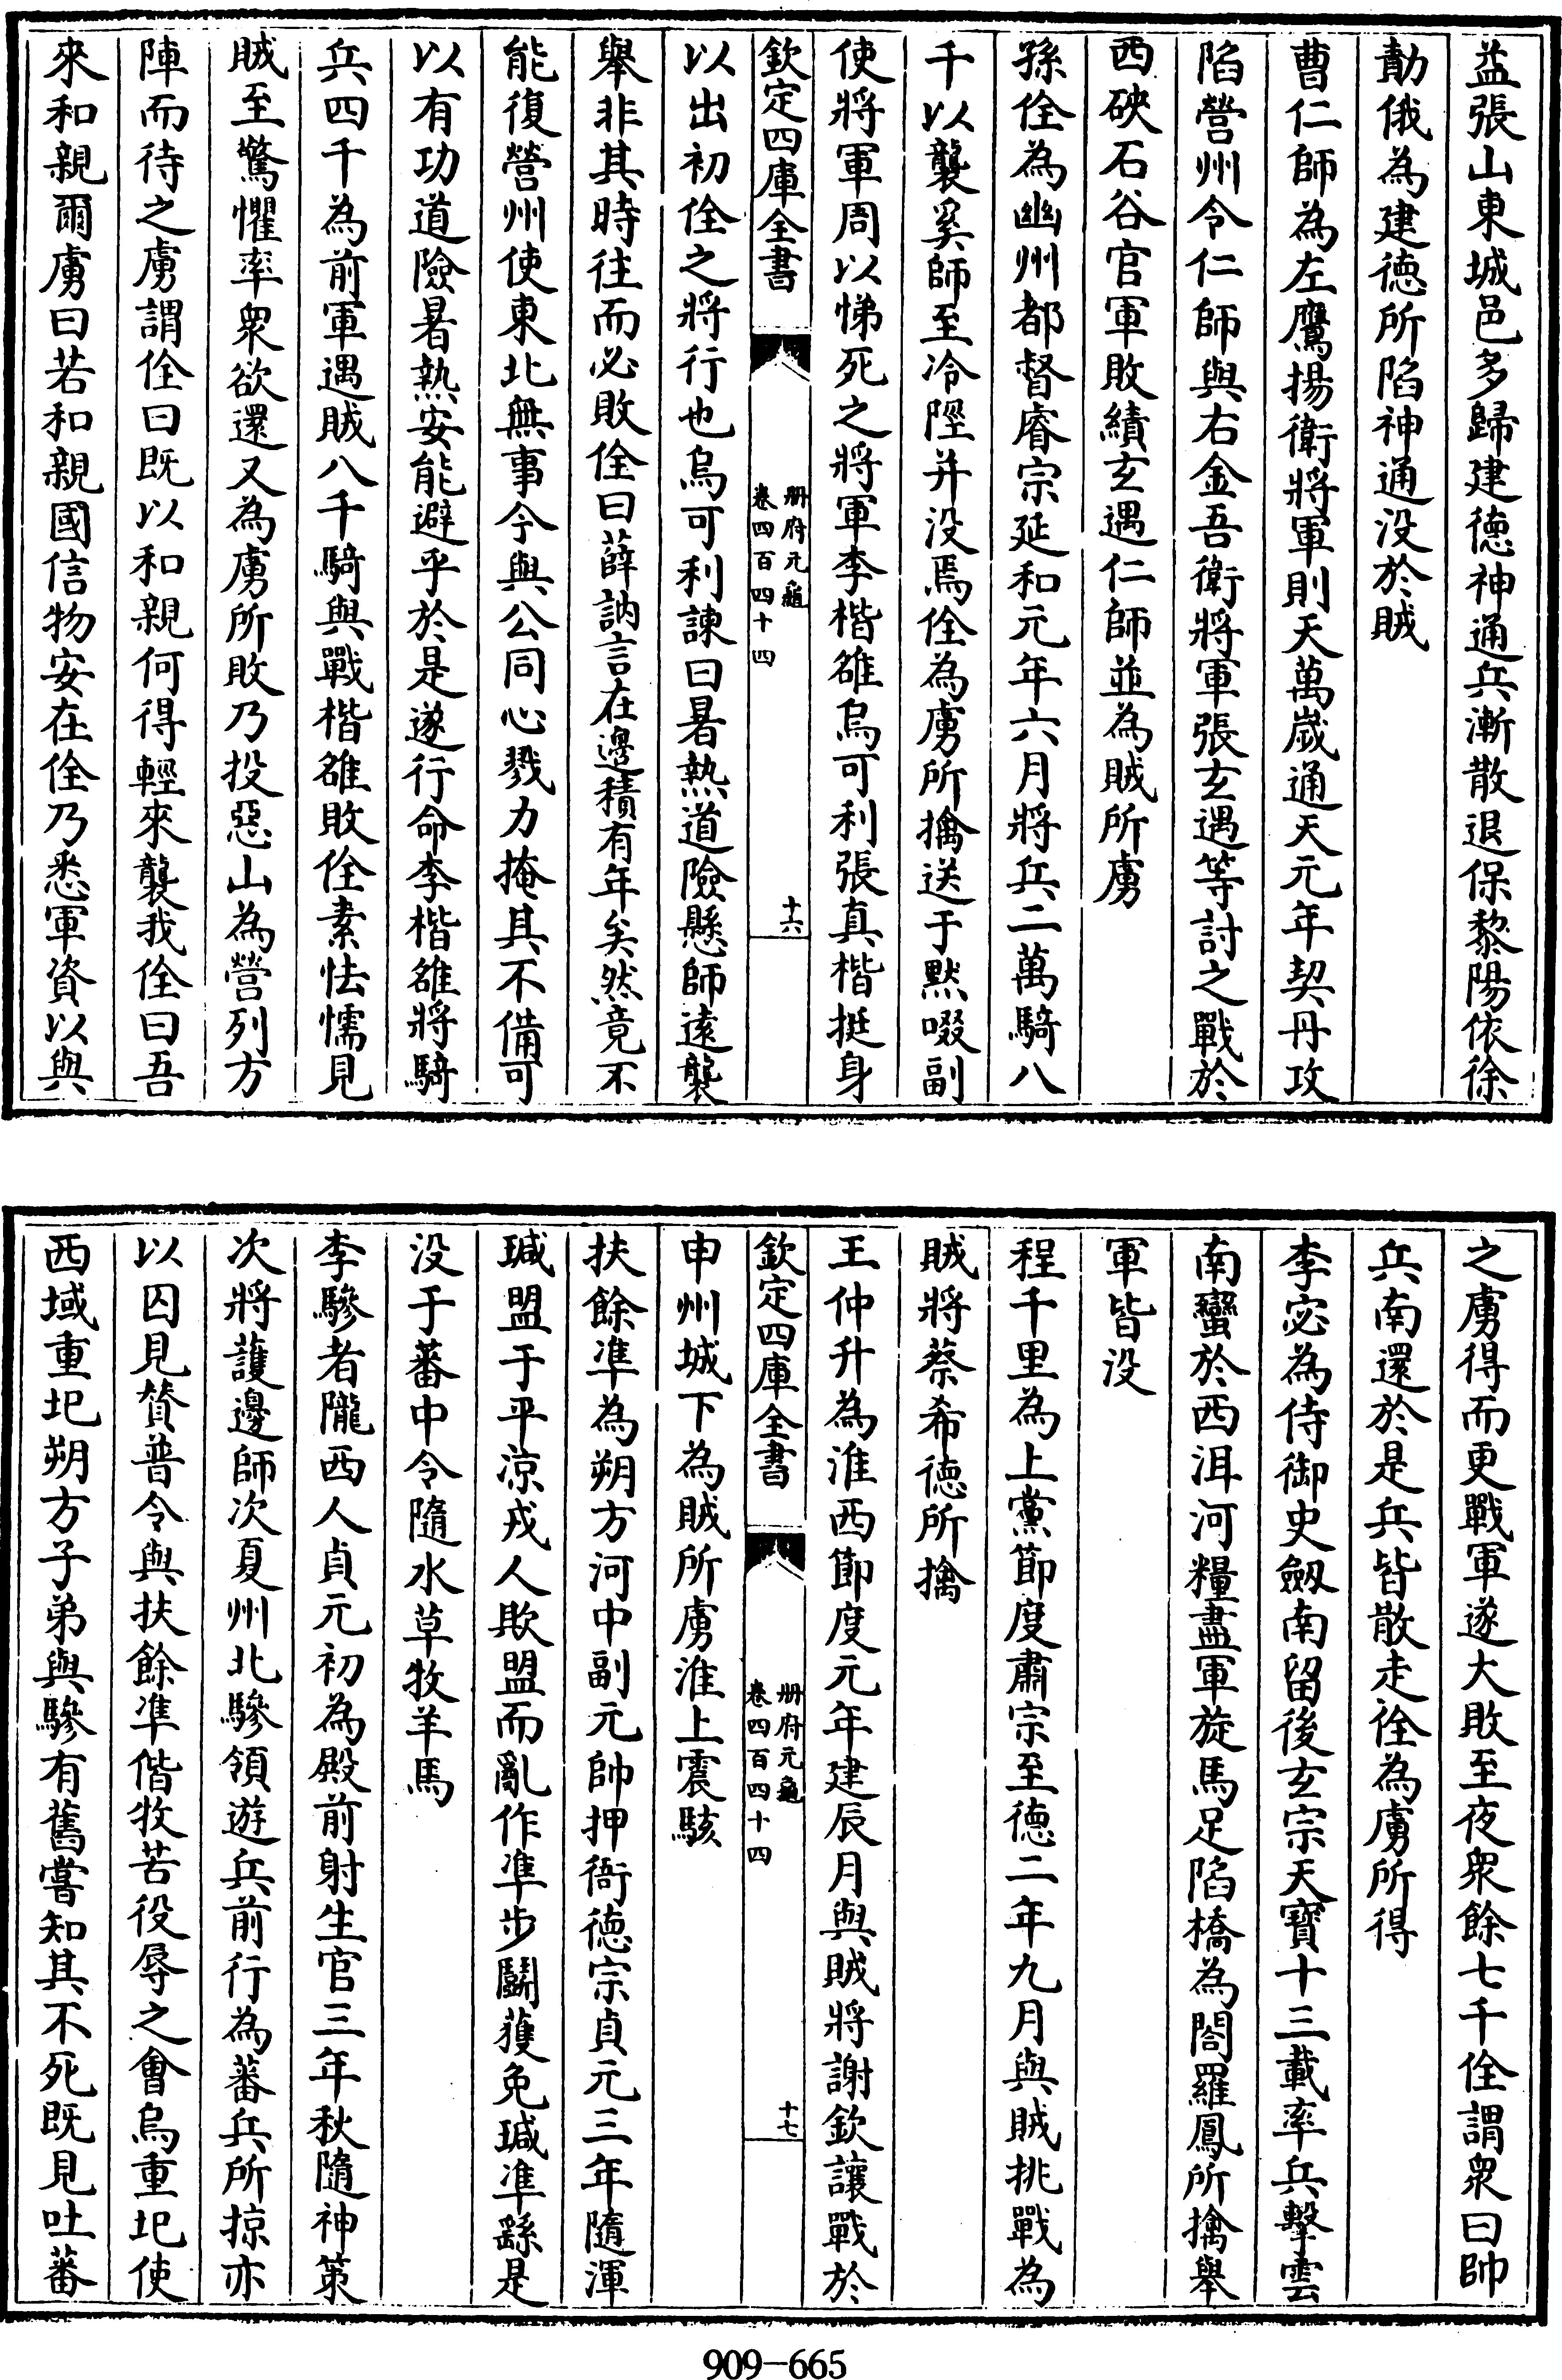 益張山東城邑多歸建徳神通兵漸散退保黎陽依徐
勣俄為建徳所陷神通没於賊
曹仁師為左鷹揚衛將軍則天萬歲通天元年契丹攻
陷營州令仁師與右金吾衛將軍張玄遇等討之戰於
西硤石谷官軍敗績玄遇仁師並為賊所虜
孫佺為幽州都督睿宗延和元年六月將兵二萬騎八
千以襲奚師至冷陘并没焉佺為虜所擒送于黙啜副
使將軍周以悌死之將軍李楷雒烏可利張真楷挺身
欽定四庫全書
册府元龜
卷四百四十四
十六
以出初佺之將行也烏可利諫曰暑熱道險懸師遠襲
舉非其時往而必敗佺曰薛訥言在邊積有年矣然竟不
能復營州使東北無事今與公同心戮力掩其不備可
以有功道險暑熱安能避乎於是遂行命李楷雒將騎
兵四千為前軍遇賊八千騎與戰楷雒敗佺素怯懦見
賊至驚懼率衆欲還又為虜所敗乃投惡山為營列方
陣而待之虜謂佺曰既以和親何得輕來襲我佺曰吾
來和親爾虜曰若和親國信物安在佺乃悉軍資以與
之虜得而更戰軍遂大敗至夜衆餘七千佺謂衆曰帥
兵南還於是兵皆散走佺為虜所得
李宓為侍御史劒南留後玄宗天寶十三載率兵擊雲
南蠻於西洱河糧盡軍旋馬足陷橋為閤羅鳳所擒舉
軍皆没
程千里為上黨節度肅宗至德二年九月與賊挑戰為
賊將蔡希徳所擒
王仲升為淮西節度元年建辰月與賊將謝欽讓戰於
欽定四庫全書
册府元龜
卷四百四十四
十七
申州城下為賊所虜淮上震駭
扶餘凖為朔方河中副元帥押衙徳宗貞元三年隨渾
瑊盟于平涼戎人欺盟而亂作凖步鬭獲免瑊凖繇是
没于蕃中令隨水草牧羊馬
李驂者隴西人貞元初為殿前射生官三年秋隨神策
次將護邊師次夏州北驂領遊兵前行為蕃兵所掠亦
以囚見贊普令與扶餘凖偕牧苦役辱之會烏重玘使
西域重玘朔方子弟與驂有舊嘗知其不死既見吐蕃
909-665